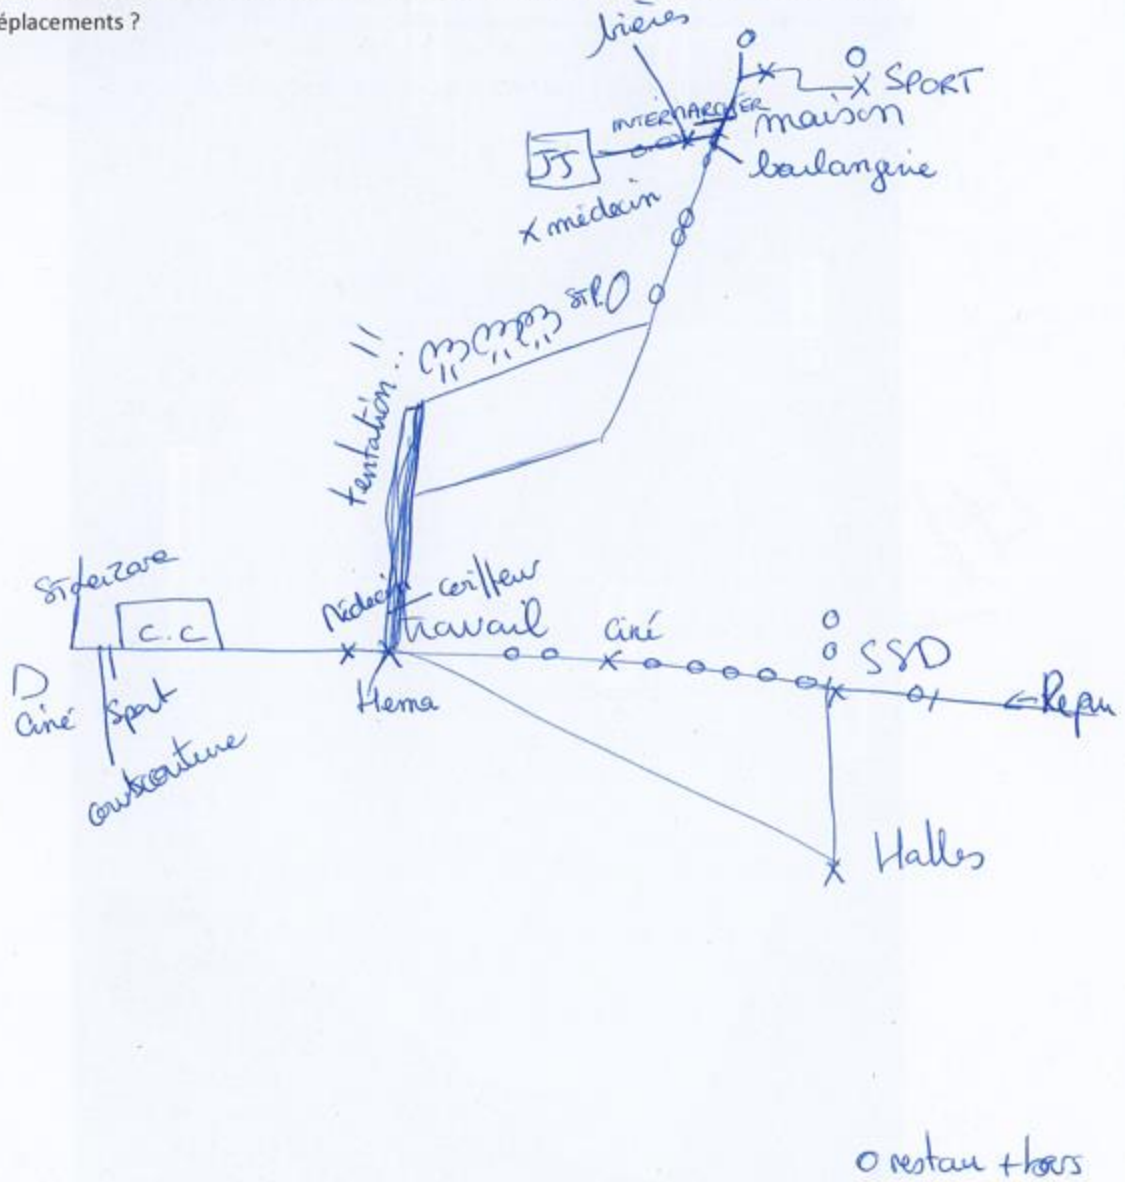 éplacements ?
bières
SPORT
INTERMARCHER
maison
JJ
boulangerie
X médecin
ST P.
tentation.. !!
St Lazare
C.C
Médecin
coiffeur
travail
Ciné
SSD
D
Ciné
Sport
Hema
Halles
O restau + bars